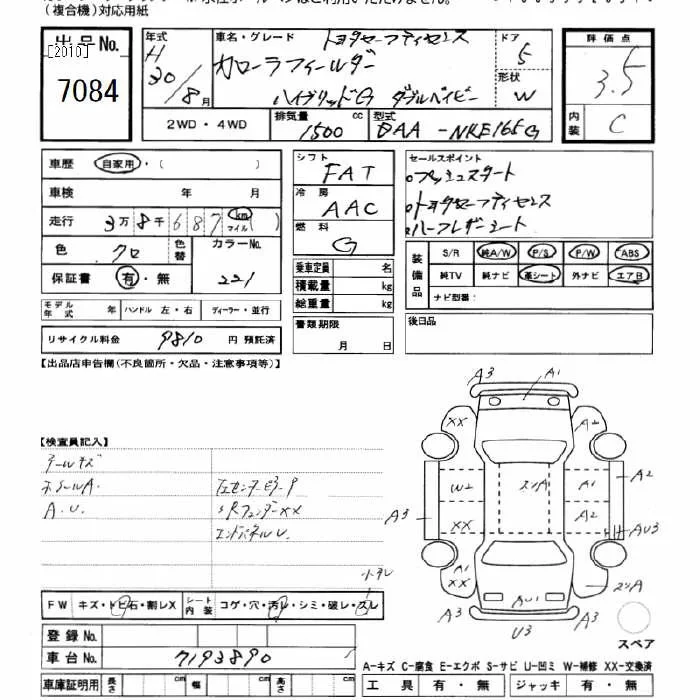 (複合機)対応用紙
出品No.
[2010]
7084
年式
H
30/8月
車名・グレード
トヨタセーフティセンス
カローラフィールダー
ハイブリッドG ダブルバイビー
ドア
5
形状
W
2WD・4WD
排気量
1500
cc
型式
DAA-NKE165G
評価点
3.5
内装
C
車歴
自家用・( )
車検 年 月
走行 3万8千687 km マイル( )
色 クロ
色替
カラーNo.
221
保証書 有・無
モデル年式 年
ハンドル 左・右
ディーラー・並行
リサイクル料金 9810 円 預託済
シフト
FAT
冷房
AAC
燃料
G
乗車定員 名
積載量 kg
総重量 kg
書類期限
月 日
セールスポイント
プッシュスタート
トヨタセーフティセンス
ハーフレザーシート
装備品
S/R 純A/W P/S P/W ABS
純TV 純ナビ 革シート 外ナビ エアB
ナビ型番:
後日品
【出品店申告欄(不良箇所・欠品・注意事項等)】
【検査員記入】
ホイールA.
A.U.
左センターピラーP
エンドパネルU.
A3
A1
XX
A2
W2
スリA
A1
A2
A3
XX
A2
AU3
A1
XX
AU1
スリA
A3
U3
A3
スペア
FW キズ・トビ石・割レX
シート内装 コゲ・穴・汚レ・シミ・破レ・スレ
登録No.
車台No. 7193890
車庫証明用 長さ cm 幅 cm 高さ cm
A-キズ C-腐食 E-エクボ S-サビ U-凹ミ W-補修 XX-交換済
工具 有・無 ジャッキ 有・無